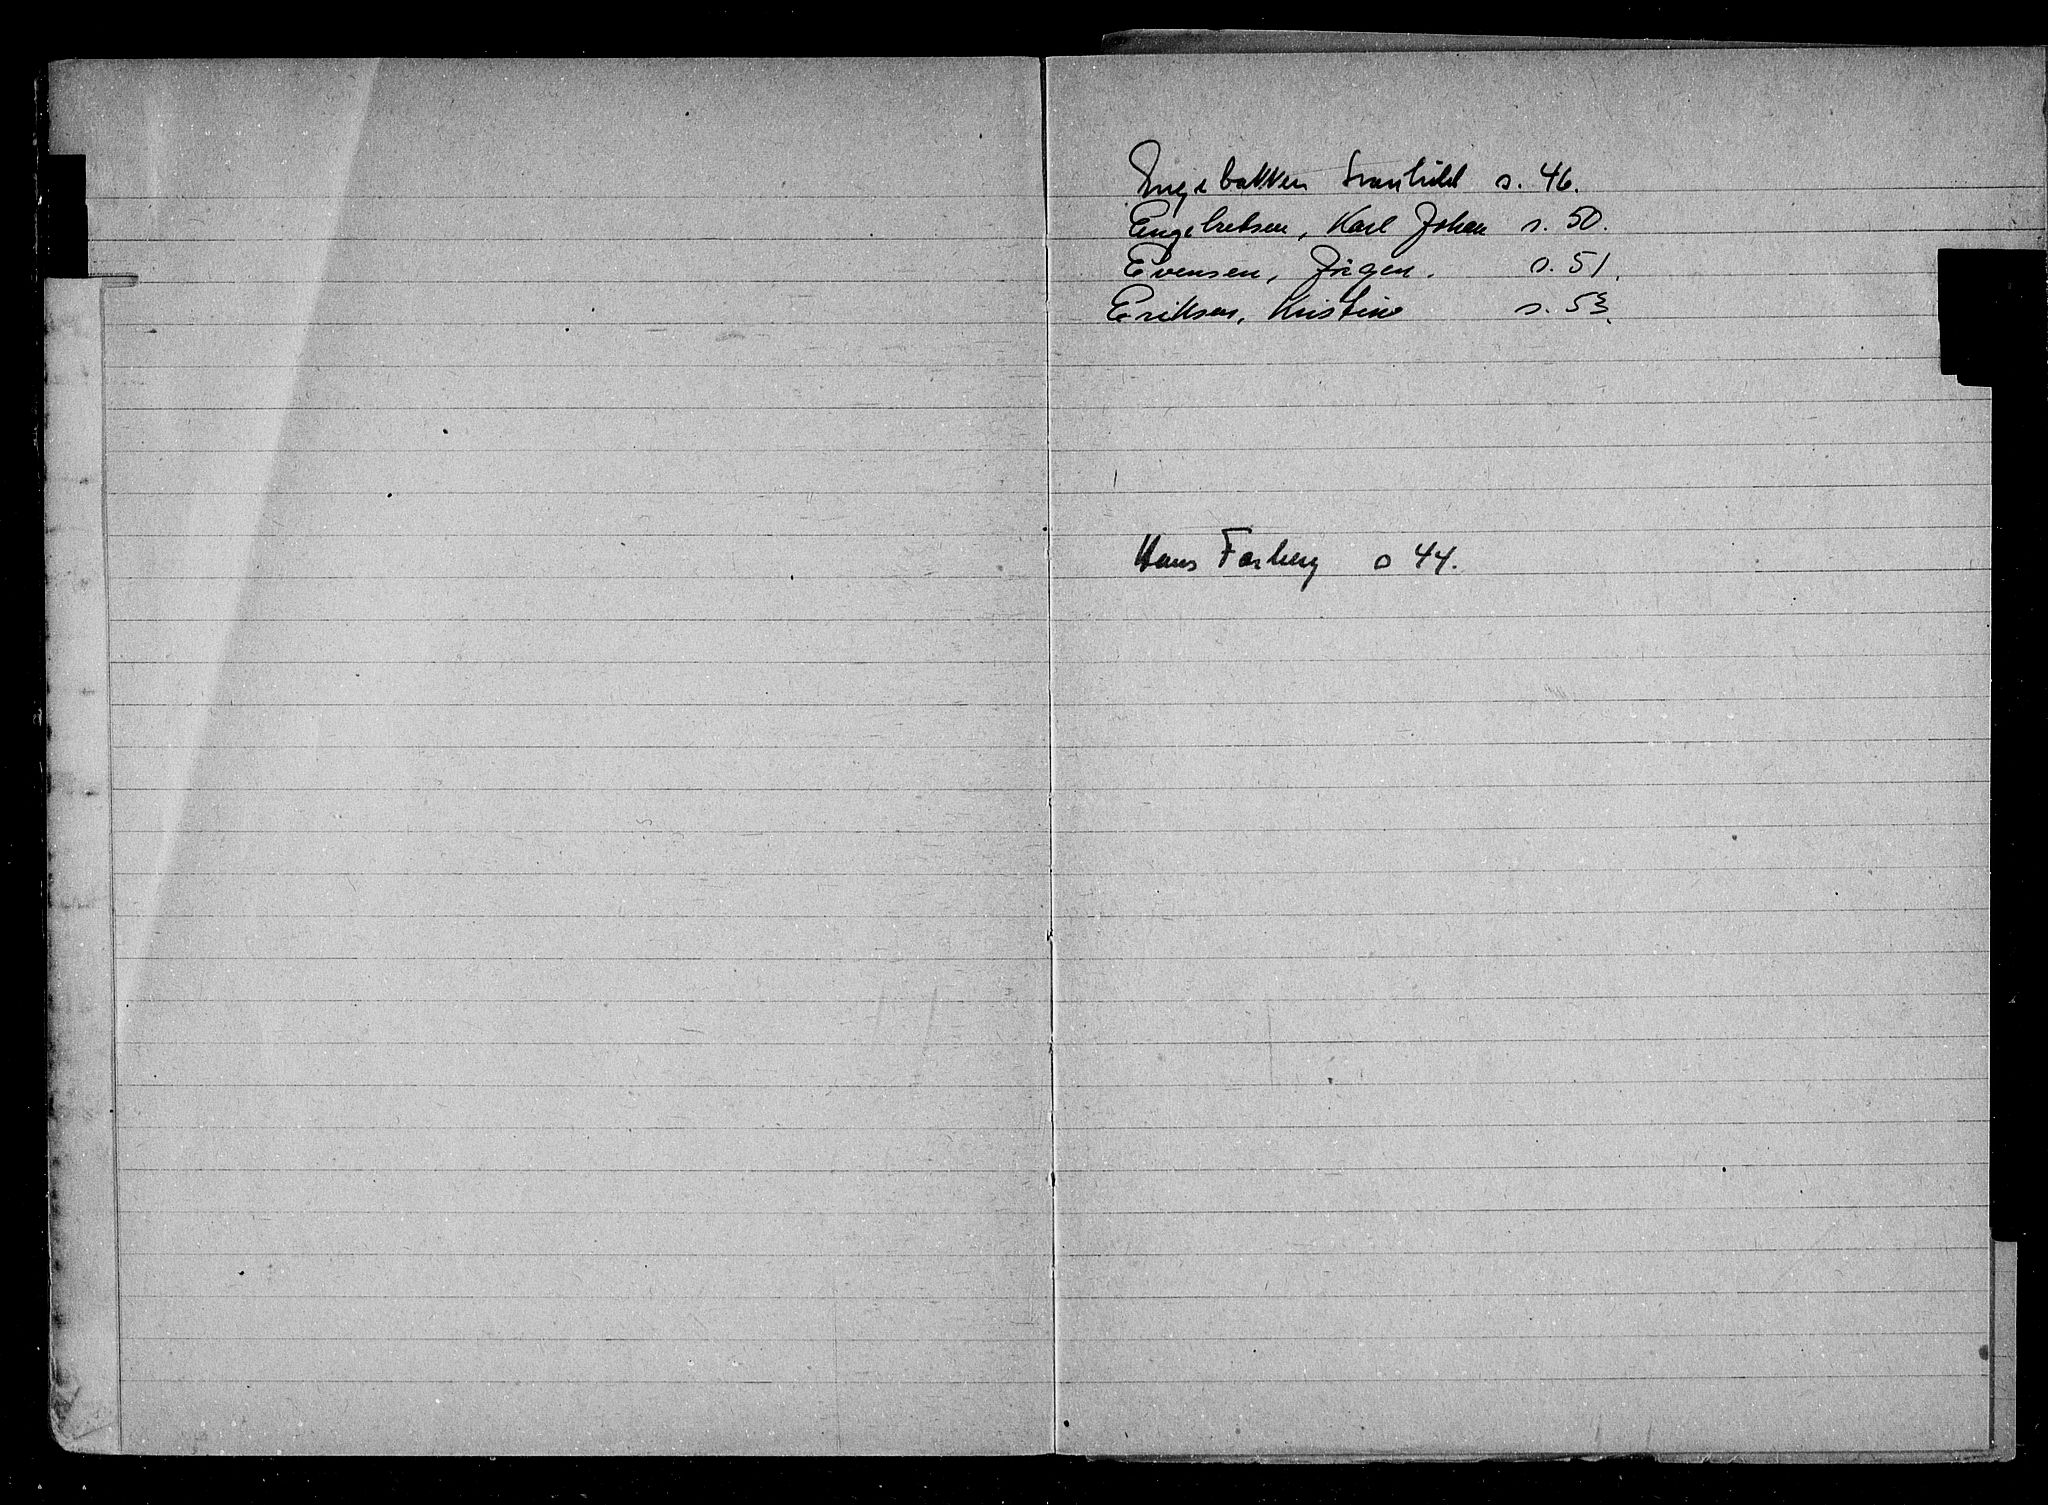 Engebakken Svanhild s. 46.
Engebretsen, Karl Johan s. 50.
Evensen, Jörgen. s. 51.
Eriksen, Kristine s. 53.
Hans Farberg s 44.